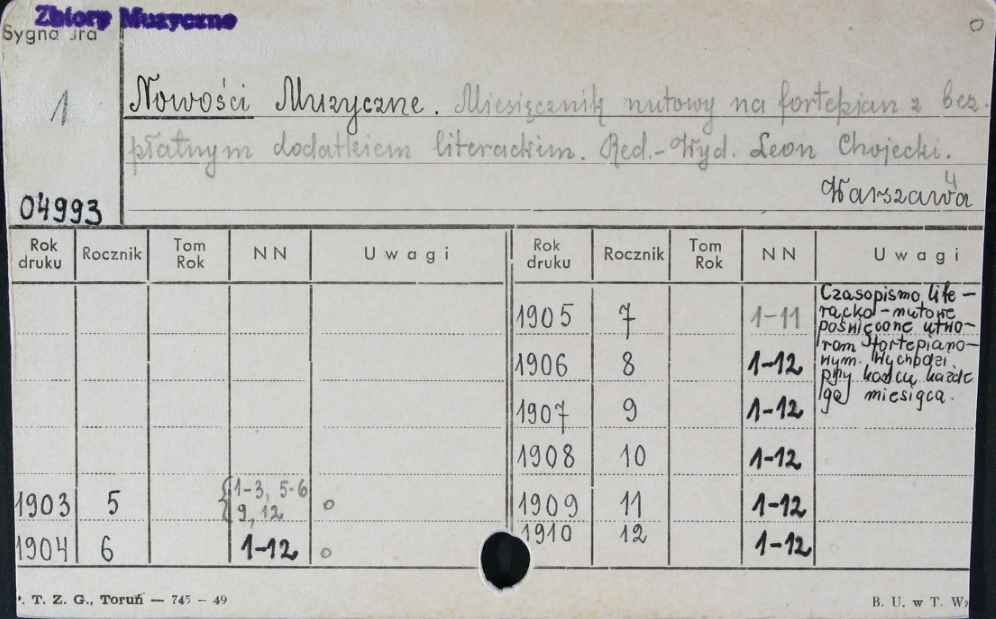 Zbiory Muzyczne
Sygnatura
1
04993
Nowości Muzyczne. Miesięcznik nutowy na fortepjan z bez-
płatnym dodatkiem literackim. Red.-Wyd. Leon Chojecki.
4
Warszawa
Rok druku Rocznik Tom Rok NN Uwagi
1903 5 1-3, 5-6 9, 12 o
1904 6 1-12 o
Rok druku Rocznik Tom Rok NN Uwagi
1905 7 1-11
1906 8 1-12
1907 9 1-12
1908 10 1-12
1909 11 1-12
1910 12 1-12
Czasopismo lite-
racko-nutowe
poświęcone utwo-
rom fortepiano-
nym. Wychodzi
przy końcu każde
go miesiąca.
T. Z. G., Toruń — 745 - 49
B. U. w T. W